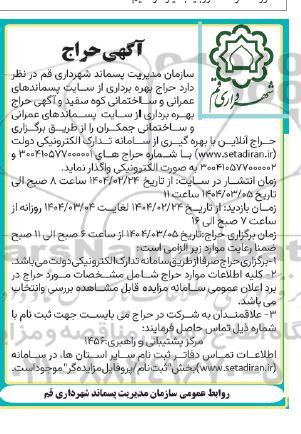 آگهی حراج
شهرداری قم
سازمان مدیریت پسماند شهرداری قم در نظر
دارد حراج بهره برداری از سایت پسماندهای
عمرانی و ساختمانی کوه سفید و آگهی حراج
بهره برداری از سایت پسماندهای عمرانی
و ساختمانی جمکران را از طریق برگزاری
حراج آنلاین با بهره گیری از سامانه تدارک الکترونیکی دولت
(www.setadiran.ir) با شماره حراج های 3004105770000001 و
3004105770000002 به صورت الکترونیکی واگذار نماید.
زمان انتشار در سایت: از تاریخ 1404/02/24 ساعت 8 صبح الی
تاریخ 1404/03/05 ساعت 11
زمان بازدید: از تاریخ 1404/02/24 لغایت 1404/03/04 روزانه از
ساعت 7 صبح الی 16
زمان برگزاری حراج: تاریخ 1404/03/05 از ساعت 6 صبح الی 11 صبح
ضمنا رعایت موارد زیر الزامی است:
1-برگزاری حراج صرفا از طریق سامانه تدارک الکترونیکی دولت می باشد.
2- کلیه اطلاعات موارد حراج شامل مشخصات مورد حراج در
برد اعلان عمومی سامانه مزایده قابل مشاهده بررسی وانتخاب
می باشد.
3- علاقمندان به شرکت در حراج می بایست جهت ثبت نام با
شماره ذیل تماس حاصل فرمایند:
مرکز پشتیبانی و راهبری:1456
اطلاعات تماس دفاتر ثبت نام سایر استان ها، در سامانه
(www.setadiran.ir) بخش" ثبت نام/ پروفایل مزایده گر" موجود است.
روابط عمومی سازمان مدیریت پسماند شهرداری قم